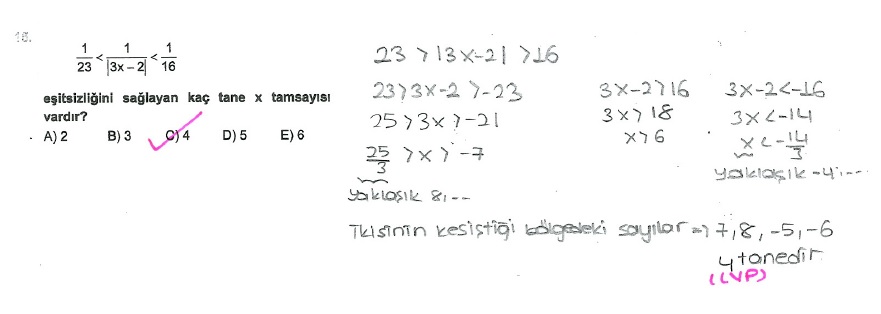 15.
1/23 < 1/|3x – 2| < 1/16
eşitsizliğini sağlayan kaç tane x tamsayısı
vardır?
A) 2 B) 3 C) 4 D) 5 E) 6
23 > |3x-2| > 16
23 > 3x-2 > -23
25 > 3x > -21
25/3 > x > -7
yaklaşık 8,--
3x-2 > 16
3x > 18
x > 6
3x-2 < -16
3x < -14
x < -14/3
yaklaşık -4,---
İkisinin kesiştiği bölgedeki sayılar => 7, 8, -5, -6
4 tanedir
(LVP)